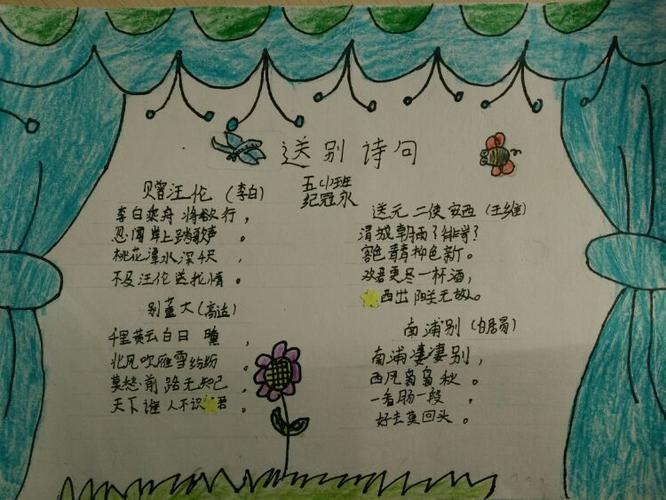 送别诗句
五(1)班
纪冠永
赠汪伦(李白)
李白乘舟将欲行,
忽闻岸上踏歌声。
桃花潭水深千尺,
不及汪伦送我情。
别董大(高适)
千里黄云白日曛,
北风吹雁雪纷纷。
莫愁前路无知己,
天下谁人不识君。
送元二使安西(王维)
渭城朝雨
客舍青青柳色新。
劝君更尽一杯酒,
西出阳关无故人。
南浦别(白居易)
南浦凄凄别,
西风袅袅秋。
一看肠一段,
好去莫回头。